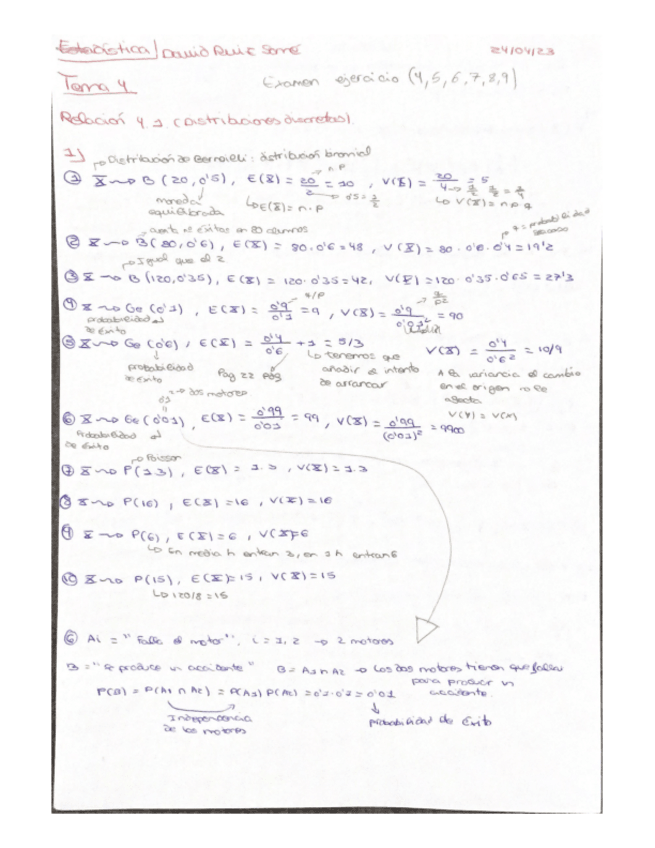 Estadística / David Ruiz 24/04/23
Tema 4 Examen ejercicio (4,5,6,7,8,9)
Relación 4.1 (Distribuciones discretas).
1) Distribución de Bernoulli: distribución binomial
① X ~ B(20, 0'5), E(X) = 20/2 = 10, V(X) = 20/4 = 5
n·p 0'5 = 1/2 1/2 · 1/2 = 1/4
moneda equilibrada E(X) = n·p V(X) = n·p·q
cuenta el éxitos en 80 alumnos q = probabilidad
② X ~ B(80, 0'6), E(X) = 80·0'6 = 48, V(X) = 80·0'6·0'4 = 19'2
Igual que el 2
③ X ~ B(120, 0'35), E(X) = 120·0'35 = 42, V(X) = 120·0'35·0'65 = 27'3
④ X ~ Ge(0'1), E(X) = 0'9/0'1 = 9, V(X) = 0'9/0'01² = 90
q/p q/p²
probabilidad de éxito
⑤ X ~ Ge(0'6), E(X) = 0'4/0'6 + 1 = 5/3 V(X) = 0'4/0'6² = 10/9
probabilidad de éxito Pag 22 Tenemos que añadir el intento de arrancar A la varianza el cambio en el origen no le afecta
V(Y) = V(X)
dos motores
⑥ X ~ Ge(0'01), E(X) = 0'99/0'01 = 99, V(X) = 0'99/(0'01)² = 9900
Probabilidad de éxito
Poisson
⑦ X ~ P(1.3), E(X) = 1.3, V(X) = 1.3
⑧ X ~ P(16), E(X) = 16, V(X) = 16
⑨ X ~ P(6), E(X) = 6, V(X) = 6
En media h entran 3, en 1 h entran 6
⑩ X ~ P(15), E(X) = 15, V(X) = 15
120/8 = 15
⑥ Ai = "Falle el motor". i = 1, 2 → 2 motores
B = "Se produce un accidente" B = A1 ∩ A2 → Los dos motores tienen que fallar
para producir un accidente.
P(B) = P(A1 ∩ A2) = P(A1) P(A2) = 0'1·0'1 = 0'01
Independencia de los motores probabilidad de éxito